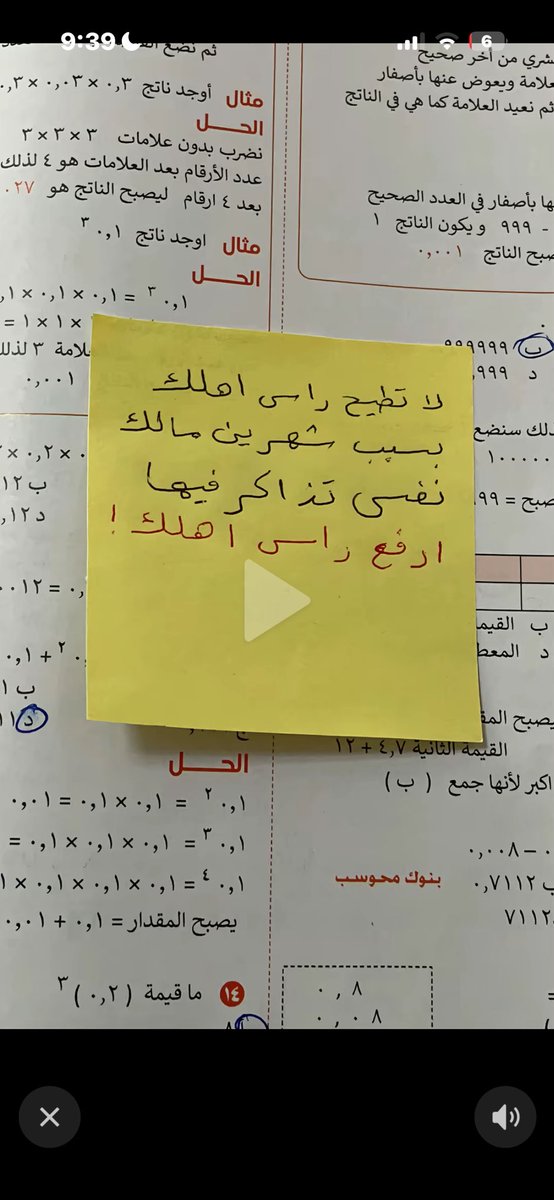 9:39
6
ثم نضع
مثال أوجد ناتج ٠,٣ × ٠,٠٣ ×
الحل
نضرب بدون علامات ٣ × ٣ × ٣
عدد الأرقام بعد العلامات هو ٤ لذلك
بعد ٤ ارقام ليصبح الناتج هو ٠٢٧
مثال اوجد ناتج ٠,١ ٣
الحل
٠,١ ٣ = ٠,١ × ٠,١ × ٠,١
× ١ × ١ =
علامة ٣ لذلك
٠,٠٠١
شري من أخر صحيح
علامة ويعوض عنها بأصفار
ثم نعيد العلامة كما هي في الناتج
ها بأصفار في العدد الصحيح
- ٩٩٩ ويكون الناتج ١
صبح الناتج ٠,٠٠١
ب ٩٩٩٩٩٩
د ٩٩٩,
لك سنضع
١٠٠٠٠٠
صبح = ٩٩
لا تطيح راس اهلك
بسبب شهرين مالك
نفس تذاكر فيها
ارفع راس اهلك !
× ٠,٢ × ٠
ب ١٢
د ١٢,
٠٠١٢ = ٠,
٠,١ + ٢
ب ١
د ١
الحل
٠,١ ٢ = ٠,١ × ٠,١ = ٠,٠١
٠,١ ٣ = ٠,١ × ٠,١ × ٠,١ =
٠,١ ٤ = ٠,١ × ٠,١ × ٠,١ × ١
يصبح المقدار = ٠,١ + ٠,٠١
١٤ ما قيمة ( ٠,٢ ) ٣
ب القيمة
د المعط
يصبح المق
القيمة الثانية ٤,٧ + ١٢
اكبر لأنها جمع ( ب )
٠ – ٠,٠٠٨
ب ٠,٧١١٢
بنوك محوسب
٧١١٢
٠,٨
٠,٠٨